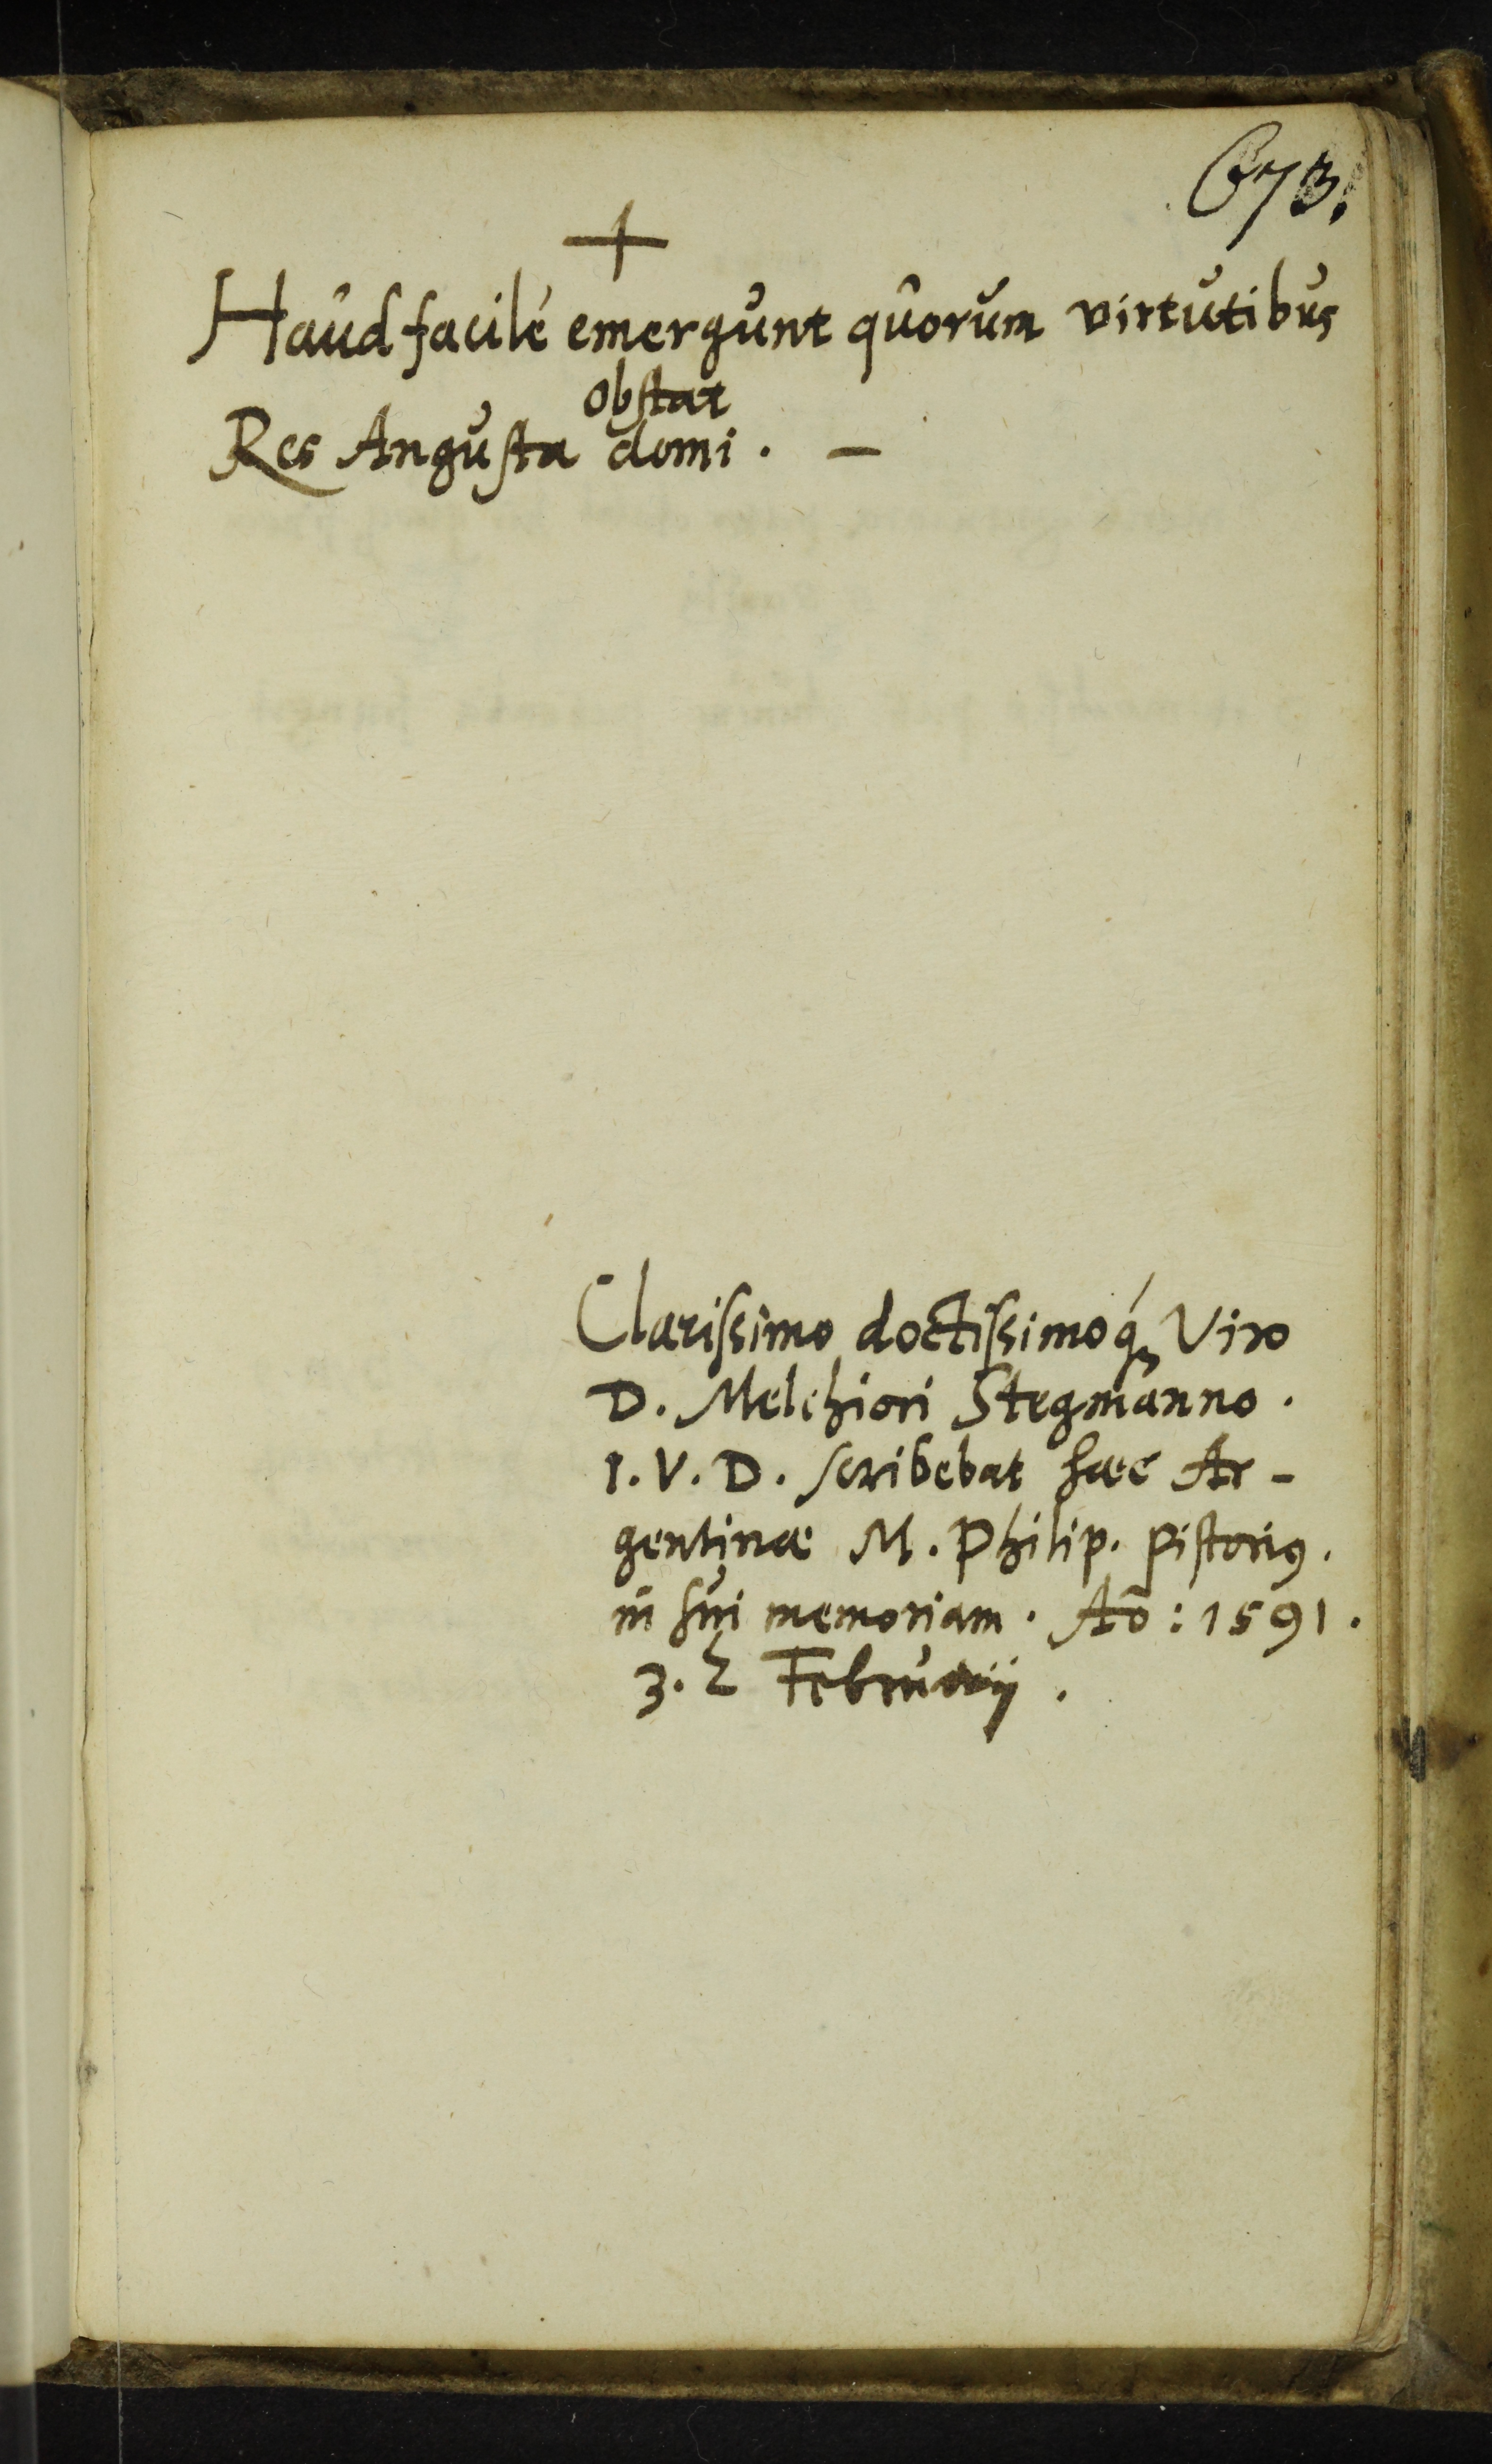 673.
+
Haud facilé emergunt quorum virtutibus
obstat
Res Angusta domi. –
Clarissimo doctissimoq́; Viro
D. Melchiori Stegmanno.
I. V. D. scribebat haec Ar-
gentinae M. Philip. Pistoriꝰ.
in sui memoriam. Aō: 1591.
3. Februarij.